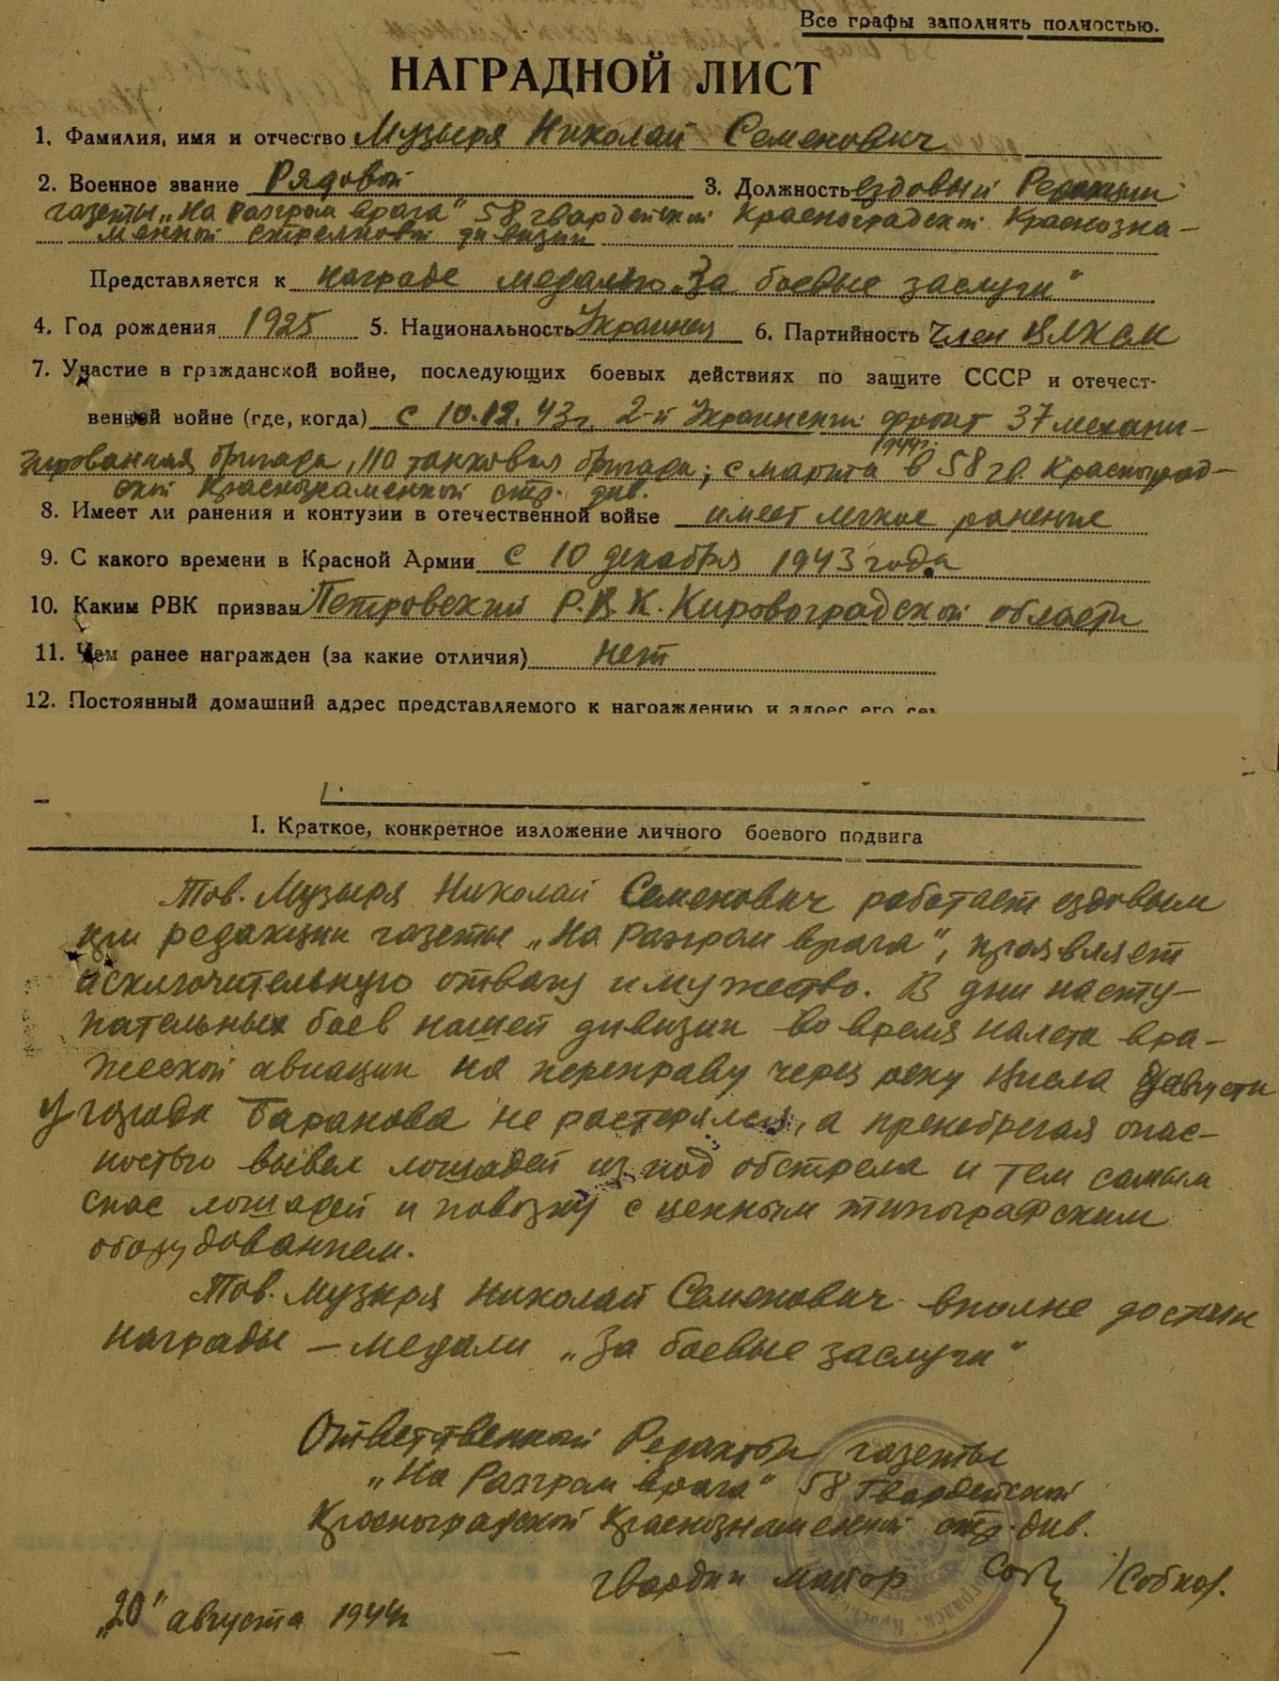 Все графы заполнять полностью.
НАГРАДНОЙ ЛИСТ
1. Фамилия, имя и отчество Музыря Николай Семенович
2. Военное звание Рядовой 3. Должность ездовый Редакции
газеты „На разгром врага“ 58 гвардейской Красноградской Краснозна-
менной стрелковой дивизии
Представляется к награде медалью „За боевые заслуги“
4. Год рождения 1925 5. Национальность Украинец 6. Партийность Член ВЛКСМ
7. Участие в гражданской войне, последующих боевых действиях по защите СССР и отечест-
венной войне (где, когда) с 10.12.43г. 2-й Украинский фронт 37 механи-
зированная бригада, 110 танковая бригада; с марта 1944г. в 58 гв. Красноград-
ской Краснознаменной стр. див.
8. Имеет ли ранения и контузии в отечественной войне имеет легкое ранение
9. С какого времени в Красной Армии с 10 декабря 1943 года
10. Каким РВК призван Петровский Р.В.К. Кировоградской области
11. Чем ранее награжден (за какие отличия) нет
12. Постоянный домашний адрес представляемого к награждению и адрес его
I. Краткое, конкретное изложение личного боевого подвига
Тов. Музыря Николай Семенович работает ездовым
при редакции газеты „На разгром врага“, проявляет
исключительную отвагу и мужество. В дни насту-
пательных боев нашей дивизии во время налета вра-
жеской авиации на переправу через реку Висла августа
у города Баранова не растерялся, а пренебрегая опас-
ностью вывел лошадей из под обстрела и тем самым
спас лошадей и повозку с ценным типографским
оборудованием.
Тов. Музыря Николай Семенович вполне достоин
награды — медали „За боевые заслуги“
Ответственный Редактор газеты
„На Разгром врага“ 58 гвардейской
Красноградской Краснознаменной стр. див.
гвардии майор /Собко/.
„20“ августа 1944г